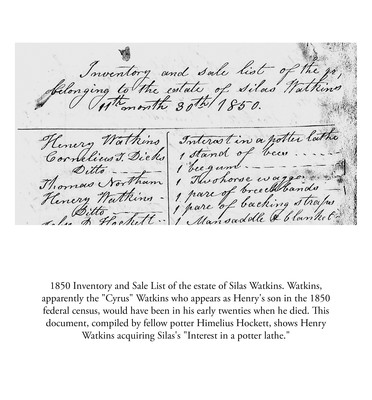 Inventory and sale list of the go,
belonging to the estate of Silas Watkins
11th month 30th 1850.
Henery Watkins Interest in a potter lathe
Cornelius T. Dicks 1 stand of bees
Ditto 1 bee gum
Thomas Northam 1 Two horse waggon
Henery Watkins 1 pare of breechbands
Ditto 1 pare of backing straps
Hockett 1 Mansaddle & blanket
1850 Inventory and Sale List of the estate of Silas Watkins. Watkins,
apparently the "Cyrus" Watkins who appears as Henry's son in the 1850
federal census, would have been in his early twenties when he died. This
document, compiled by fellow potter Himelius Hockett, shows Henry
Watkins acquiring Silas's "Interest in a potter lathe."